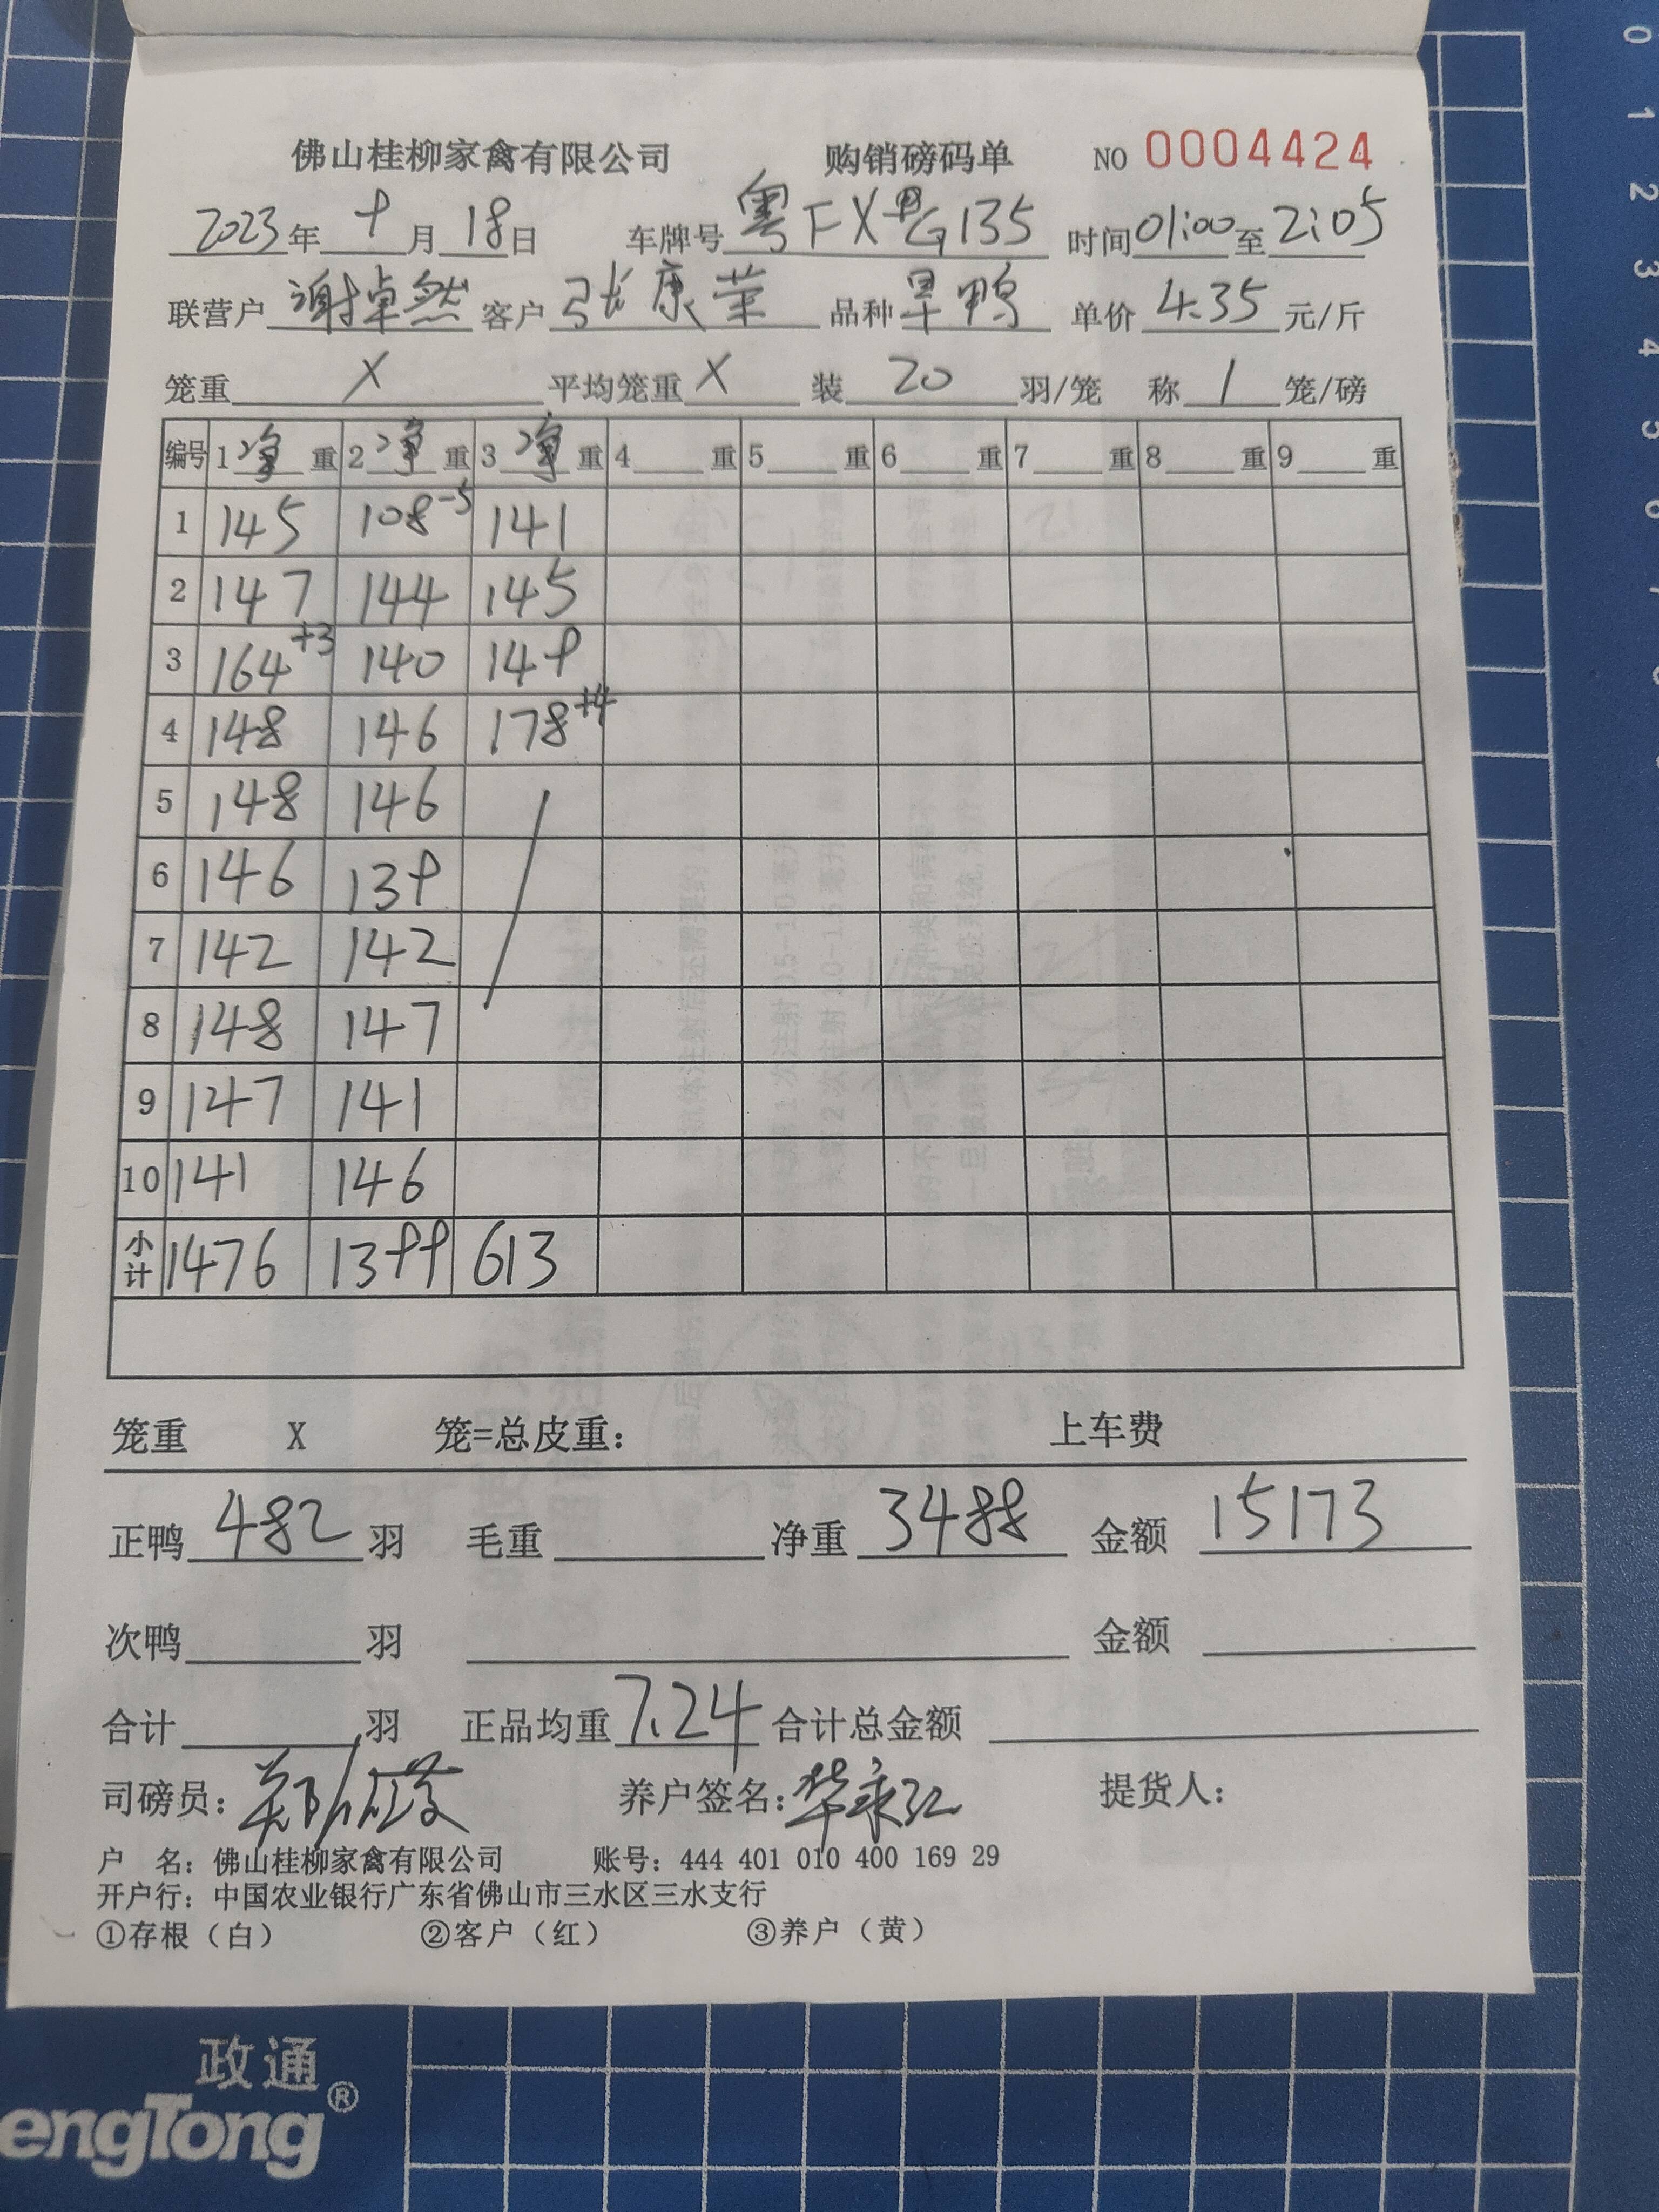 佛山桂柳家禽有限公司 购销磅码单 NO 0004424
2023年 9月 18日 车牌号 粤FX 135 时间 01:00至 2:05
联营户 谢卓然 客户 张康荣 品种 旱鸭 单价 4.35 元/斤
笼重 X 平均笼重 X 装 20 羽/笼 称 1 笼/磅
编号 1 净 重 2 净 重 3 净 重 4 重 5 重 6 重 7 重 8 重 9 重
1 145 108-5 141
2 147 144 145
3 164+3 140 149
4 148 146 178+4
5 148 146
6 146 139
7 142 142
8 148 147
9 147 141
10 141 146
小计 1476 1399 613
笼重 X 笼=总皮重: 上车费
正鸭 482 羽 毛重 净重 3488 金额 15173
次鸭 羽 金额
合计 羽 正品均重 7.24 合计总金额
司磅员: 养户签名: 提货人:
户 名: 佛山桂柳家禽有限公司 账号: 444 401 010 400 169 29
开户行: 中国农业银行广东省佛山市三水区三水支行
①存根(白) ②客户(红) ③养户(黄)
政通®
engTong
0 1 2 3 4 5 6 7